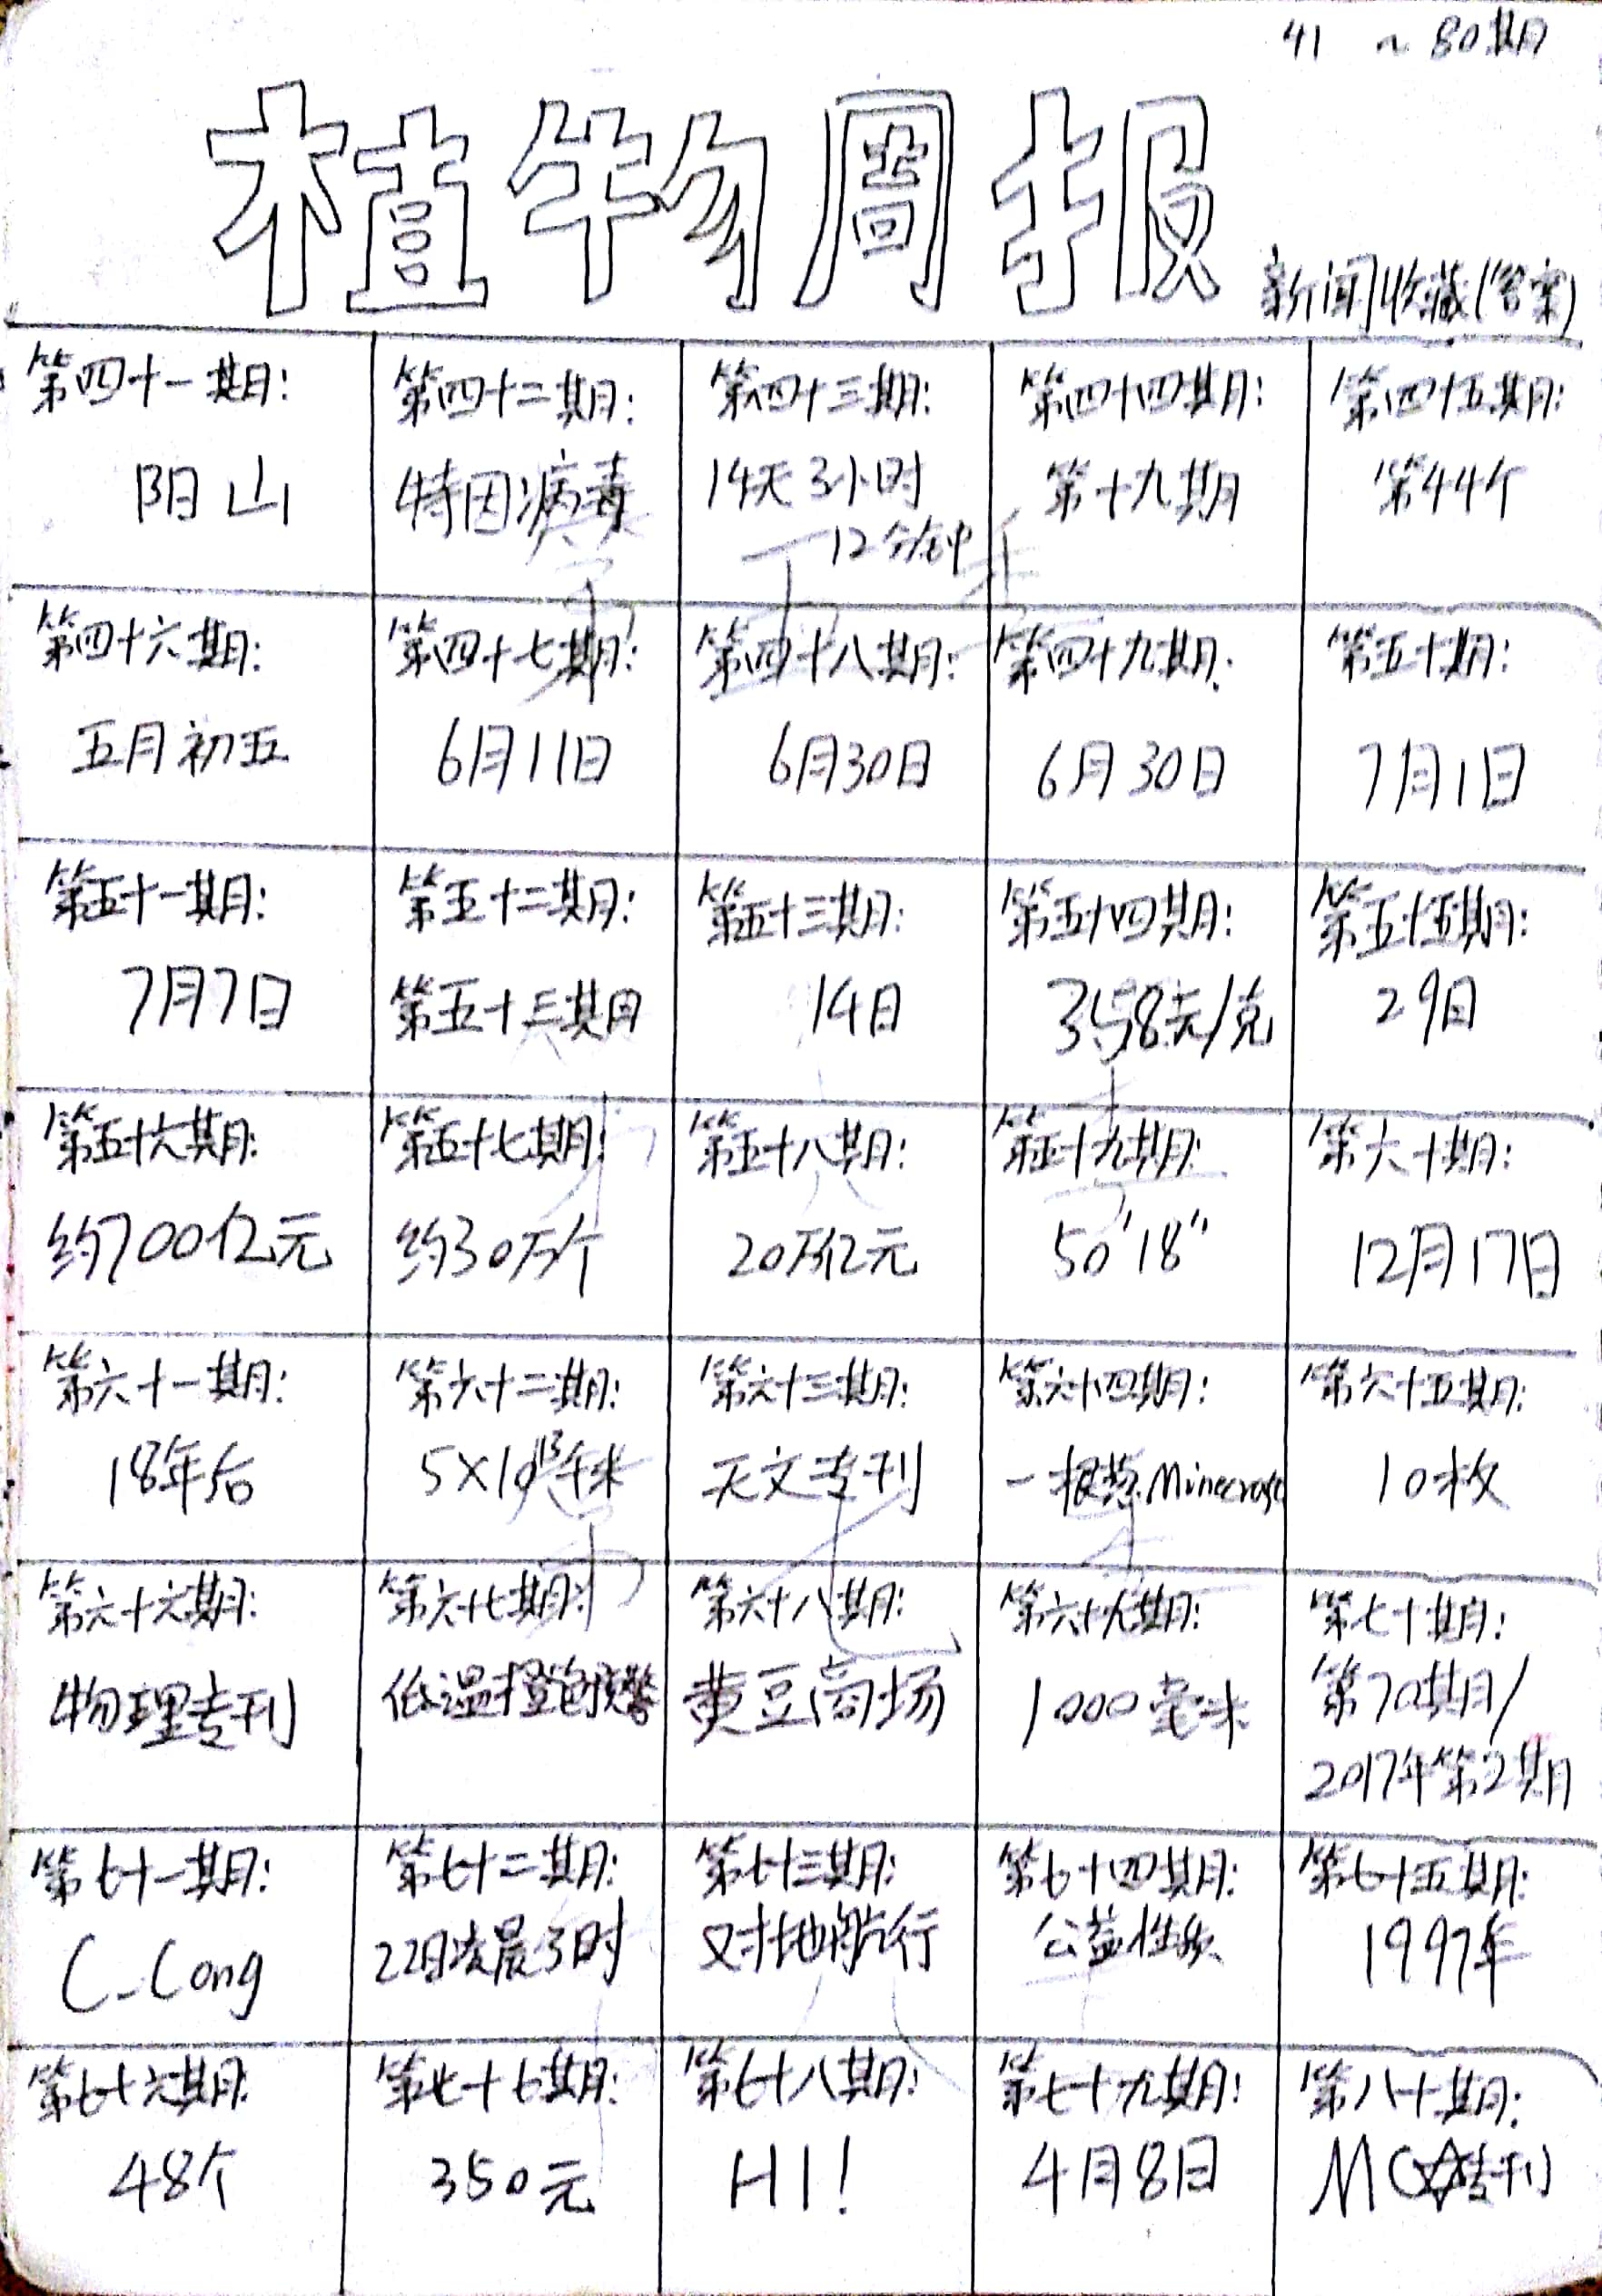 41 ~ 80期
植物周报
新闻收藏(答案)
第四十一期:
阴山
第四十二期:
特因病毒
第四十三期:
14天3小时
12分钟
第四十四期:
第十九期
第四十五期:
第44个
第四十六期:
五月初五
第四十七期:
6月11日
第四十八期:
6月30日
第四十九期:
6月30日
第五十期:
7月1日
第五十一期:
7月7日
第五十二期:
第五十三期
第五十三期:
14日
第五十四期:
358元/克
第五十五期:
29日
第五十六期:
约700亿元
第五十七期:
约30万个
第五十八期:
20万亿元
第五十九期:
50′18″
第六十期:
12月17日
第六十一期:
18年后
第六十二期:
5×10¹³千米
第六十三期:
天文专刊
第六十四期:
一根葱.Minecraft
第六十五期:
10枚
第六十六期:
物理专刊
第六十七期:
低温橙色预警
第六十八期:
黄豆商场
第六十九期:
1000毫米
第七十期:
第70期/
2017年第2期
第七十一期:
C_Cong
第七十二期:
22日凌晨3时
第七十三期:
对地航行
第七十四期:
公益性
第七十五期:
1997年
第七十六期:
48个
第七十七期:
350元
第七十八期:
HI!
第七十九期:
4月8日
第八十期:
MC专刊